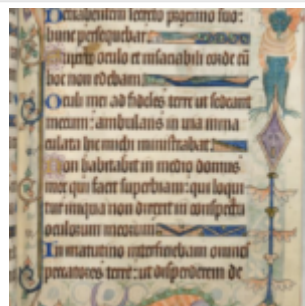 Detrahentem secreto proximo suo:
hunc persequebar.
Superbo oculo et insaciabili corde cū
hoc non edebam.
Oculi mei ad fideles terre ut sedeant
mecum: ambulans in via inma
culata hic michi ministrabat.
Non habitabit in medio domus
mee qui facit superbiam: qui loqui
tur iniqua non direxit in conspectu
oculorum meorum.
In matutino interficiebam omnes
peccatores terre: ut disperderem de